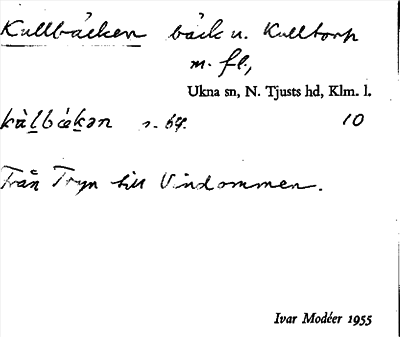 Kullbäcken bäck u. Kulltorp
m. fl.,
Ukna sn, N. Tjusts hd, Klm. l.
kàl̠bæ̀k̠ən s. 64. 10
Från Tryn till Vindommen.
Ivar Modéer 1955